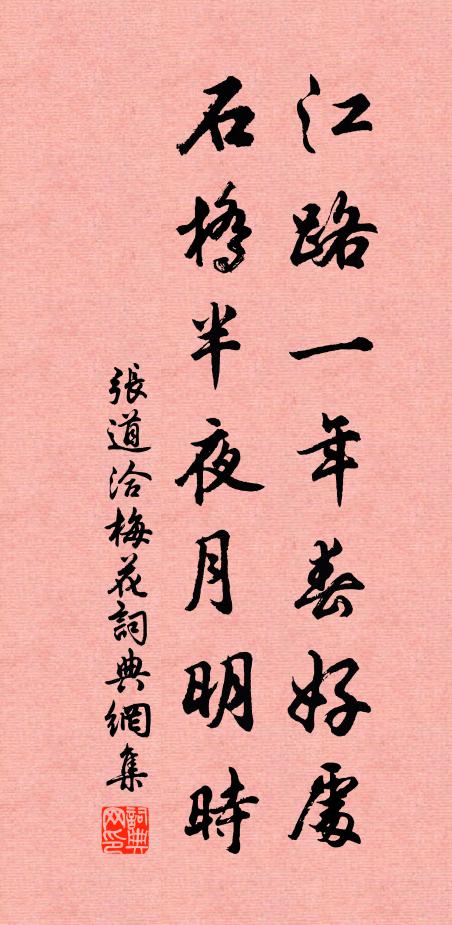 江路一年春好處
石橋半夜月明時
張道洽梅花詞典網集
詞典网印